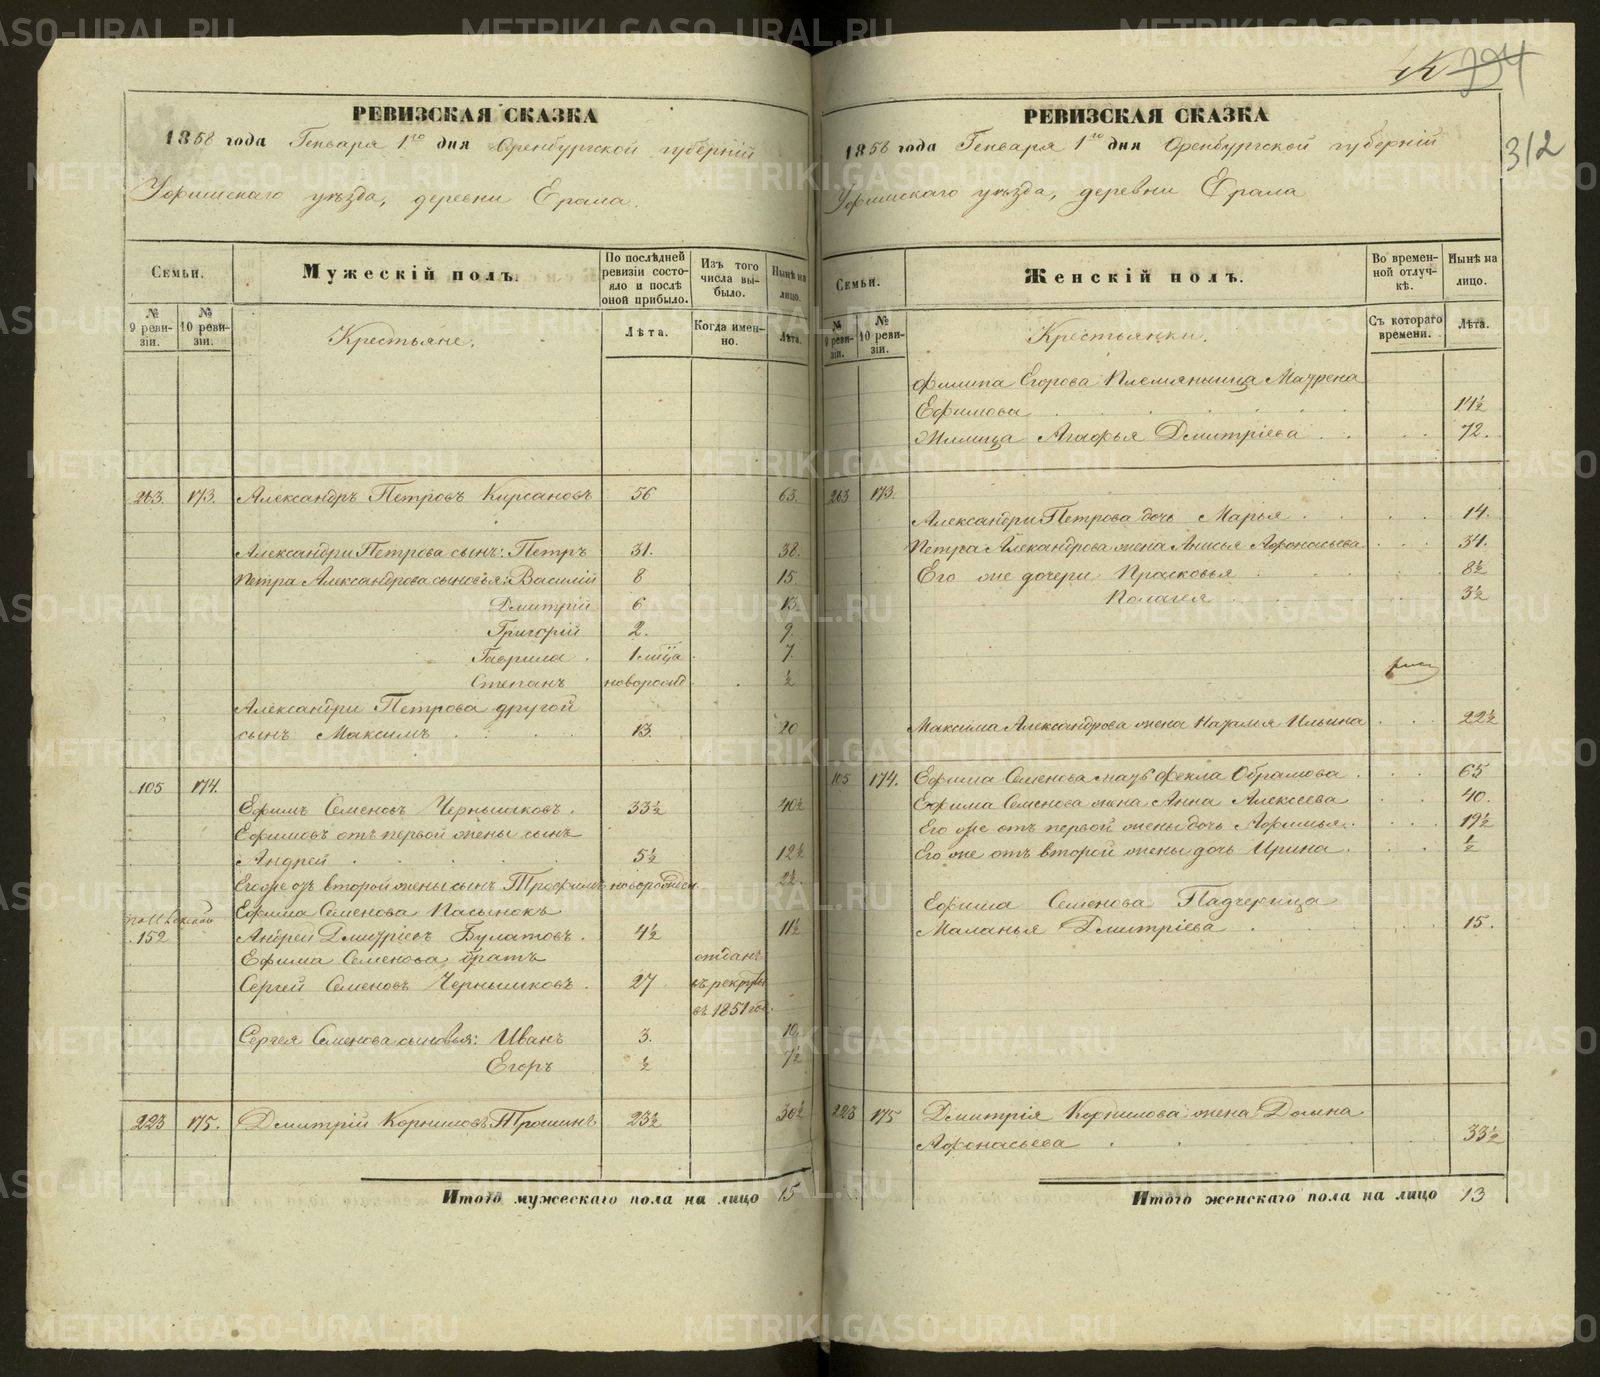 РЕВИЗСКАЯ СКАЗКА
1858 года Генваря 1го дня Оренбургской губернiй
Уфимскаго уѣзда, деревни Ерала.
Семьи.
Мужескiй полъ.
По послѣдней ревизiи состояло и послѣ оной прибыло.
Изъ того числа выбыло.
Нынѣ на лицо.
№ 9 ревизiи.
№ 10 ревизiи.
Крестьяне.
Лѣта.
Когда именно.
Лѣта.
263. 173. Александръ Петровъ Кирсановъ 56 63.
Александры Петрова сынъ: Петръ 31. 38.
Петра Александрова сыновья: Василiй 8 15.
Дмитрiй 6 13.
Григорiй 2. 9.
Гаврила 1 7.
Степанъ новорожд ½
Александры Петрова другой
сынъ Максимъ 13. 20
105 174.
Ефимъ Семеновъ Чернышковъ. 33½ 40½
Ефимовъ отъ первой жены сынъ
Андрей 5½ 12½
Его же отъ второй жены сынъ Трофимъ новорожден. 2½.
Ефима Семенова Пасынокъ
152 Андрей Дмитрiевъ Булатовъ. 4½ 11½
Ефима Семенова братъ отданъ
Сергей Семеновъ Чернышковъ. 27 въ рекруты
въ 1851 год.
Сергея Семенова сыновья: Иванъ 3. 10.
Егоръ ½ 7½
223 175. Дмитрiй Корниловъ Трошинъ 23½ 30½
Итого мужескаго пола на лицо 15
394
312
РЕВИЗСКАЯ СКАЗКА
1858 года Генваря 1го дня Оренбургской губернiй
Уфимскаго уѣзда, деревни Ерала
Семьи.
Женскiй полъ.
Во временной отлучкѣ.
Нынѣ на лицо.
№ 9 ревизiи.
№ 10 ревизiи.
Крестьянки.
Съ котораго времени.
Лѣта.
Филипа Егорова Племянница Маѵрена
Ефимова 14½
Жилица Агафья Дмитрiева 72.
263 173.
Александры Петрова дочь Марья 14.
Петра Александрова жена Анисья Афонасьева 34.
Его же дочери: Прасковья 8½
Полагея 3½
Максима Александрова жена Наталья Ильина 22½
105 174. Ефима Семенова мать Фекла Обрамова 65
Ефима Семенова жена Анна Алексеева 40.
Его же отъ первой жены дочь Афимья. 19½
Его же отъ второй жены дочь Ирина ½
Ефима Семенова Падчерица
Маланья Дмитрiева 15.
223 175 Дмитрiя Корнилова жена Домна
Афонасьева 33½
Итого женскаго пола на лицо 13
METRIKI.GASO-URAL.RU